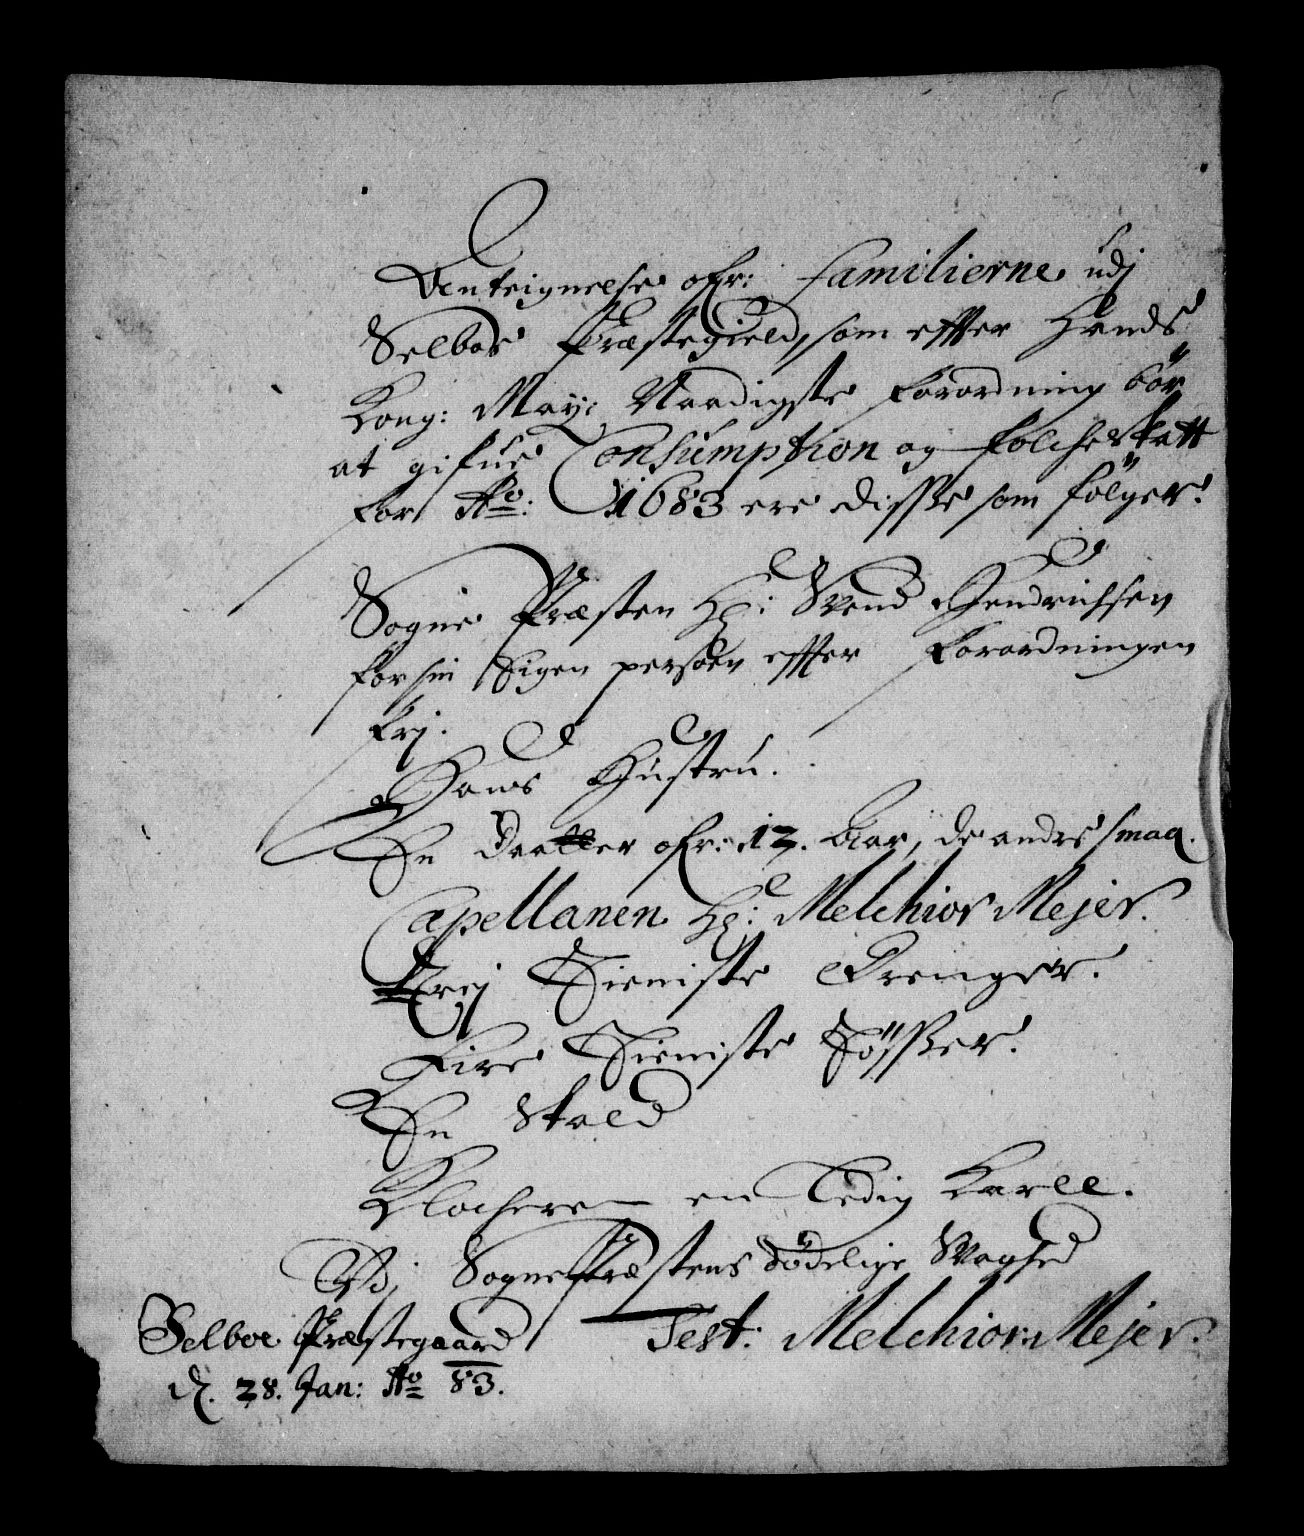 Anteignelse ofr: familierne udj
Selboe Præstegield, som effter Hands
Kong: May: Naadigste forordning bör
at gifue Consumption og folcheskatt
for Ao: 1683 ere disse som fölger.
Sogne Præsten Hr: Svend Hendrichsen
for sin Eigen persoen effter forordningen
frj.
Hans Hustru.
En Daatter ofr: 12. Aar, de andre smaa.
Capellanen Hr: Melchior Mejer.
Trej Tieniste Drenger.
Fire Tieniste TöSser.
En Skald
Klocheren en Ledig Karll.
Vdj Sogne Præstens dödelige Svaghed
Selboe Præstegaard Test: Melchior Mejer.
d. 28. Jan: Ao 83.